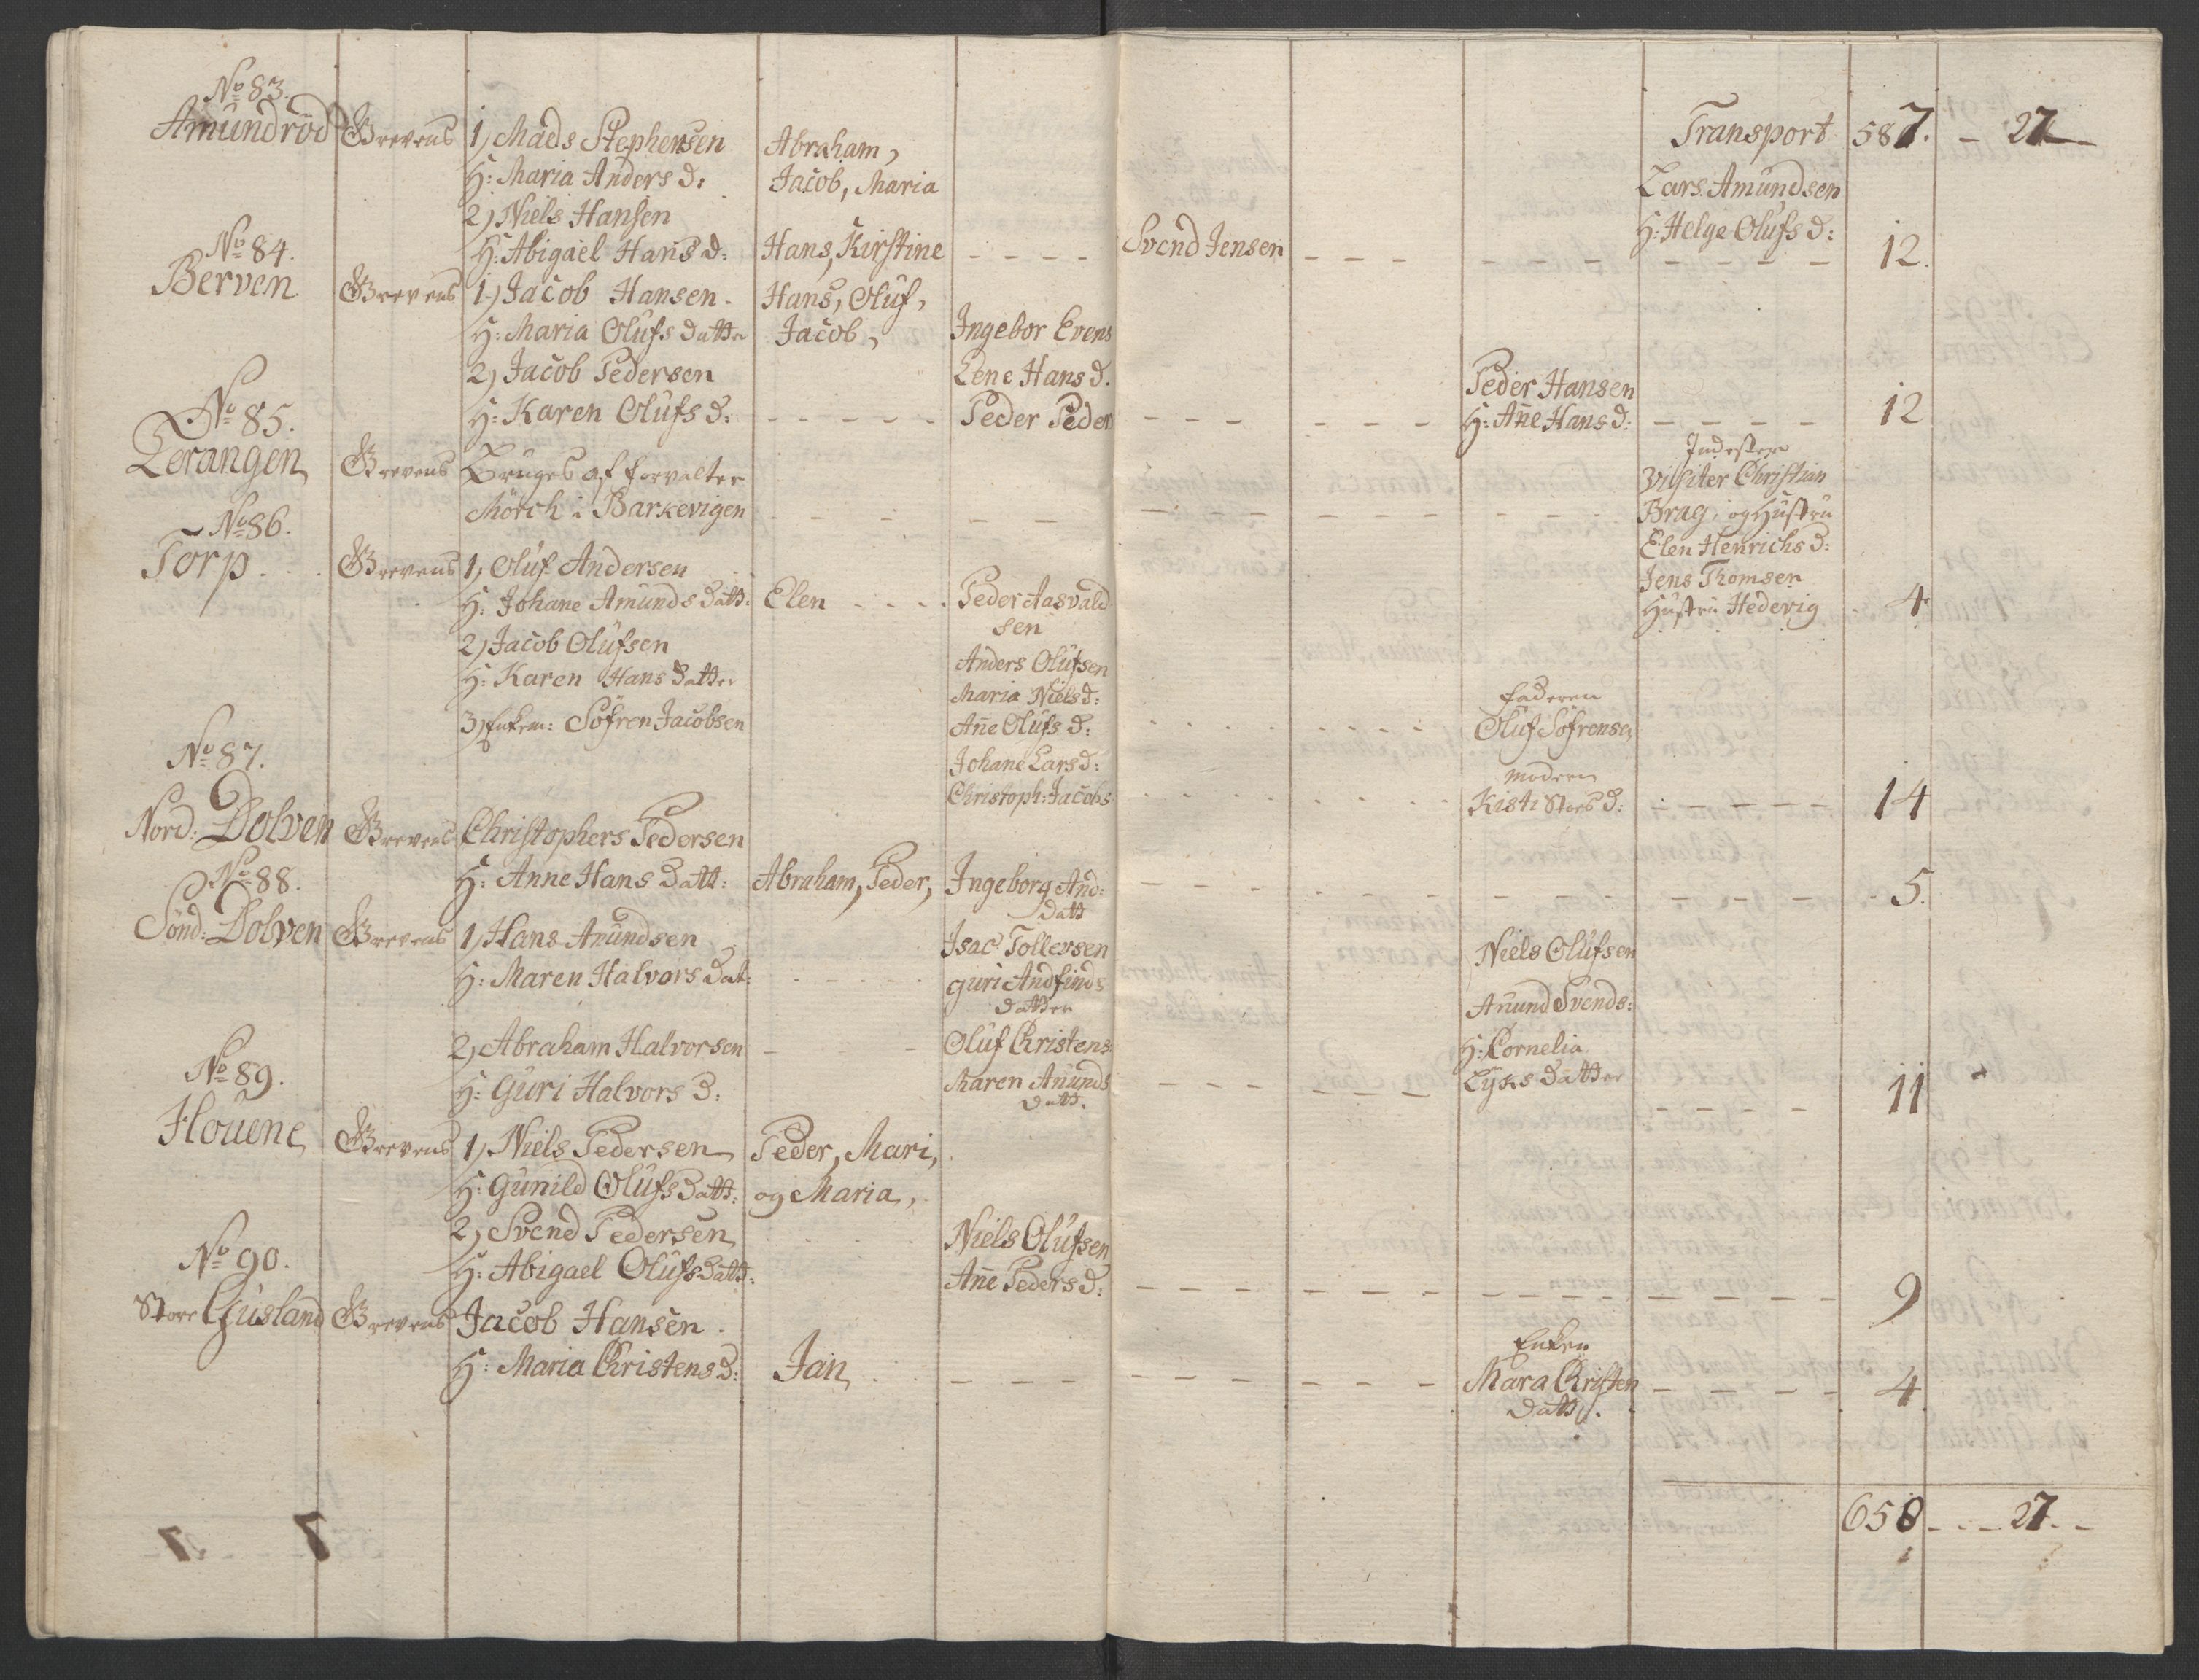 No 83. Amundröd Grevens 1, Mads Stephensen Abraham, Transport 587. - 27 -
H: Maria Anders d: Jacob, Maria Lars Amundsen
2, Niels Hansen H: Helge Olufs d:
H: Abigael Hans d: Hans, Kirstine - - - - Svend Jensen - - - - - - - - - - - - 12.
No 84. Berven Grevens 1, Jacob Hansen. Hans, Oluf,
H: Maria Olufs datter Jacob, Ingebor Evens
2, Jacob Pedersen Lene Hans d. Peder Hansen
H: Karen Olufs d: - - - - - Peder Peder - - - - - - - H: Añe Hans d: - - - - 12
No 85. Lerangen Grevens Bruges af forvalter Inderster
Mörch i Barkevigen - - - - - - - - - - - - Visiter Christian
Brag, og Hustru
Elen Henrichs d:
No 86. Torp. Grevens 1, Oluf Andersen Jens Thomsen
H: Johane Amunds datt: Elen - - - - Peder Aasvald Hustru Hedevig - 4
sen
2, Jacob Olufsen Anders Olufsen
H: Karen Hans datter Maria Niels d: Faderen
3, Enkem: Söfren Jacobsen Añe Olufs d: - - - - - - - - Oluf Söfrensen
Johane Lars d: Modern
Christoph: Jacobs - - - - - - - - Kisti d: - - - - - 14
No 87.
Nord: Dolven Grevens Christophers Pedersen
H: Anne Hans datt: Abraham, Peder, Ingeborg And: - - - - - - - - - - - - - - - 5.
datt
No 88.
Sönd: Dolven Grevens 1, Hans Anundsen Isac Tollersen Niels Olufsen
H: Maren Halvors dat: - - - - - guri Andfinds Anund Svends:
datter
2, Abraham Halvorsen - - Oluf Christens: H: Cornelia
H: Guri Halvors d: Maren Anunds - - - - - - - Lyks datter - - - - - 11
datt.
No 89.
Houene Grevens 1, Niels Pedersen Peder, Mari,
H: Gunild Olufs datt: og Maria,
2, Svend Pedersen Niels Olufsen
H: Abigael Olufs datt: Añe Peders d: - - - - - - - - - - - - - - - 9
No 90.
Store Gusland Grevens Jacob Hansen. Enken
H: Maria Christens d: Jan - - - - - - - - - - - Mara Christen - - - - - 4
datt.
658 - - - 27. - -